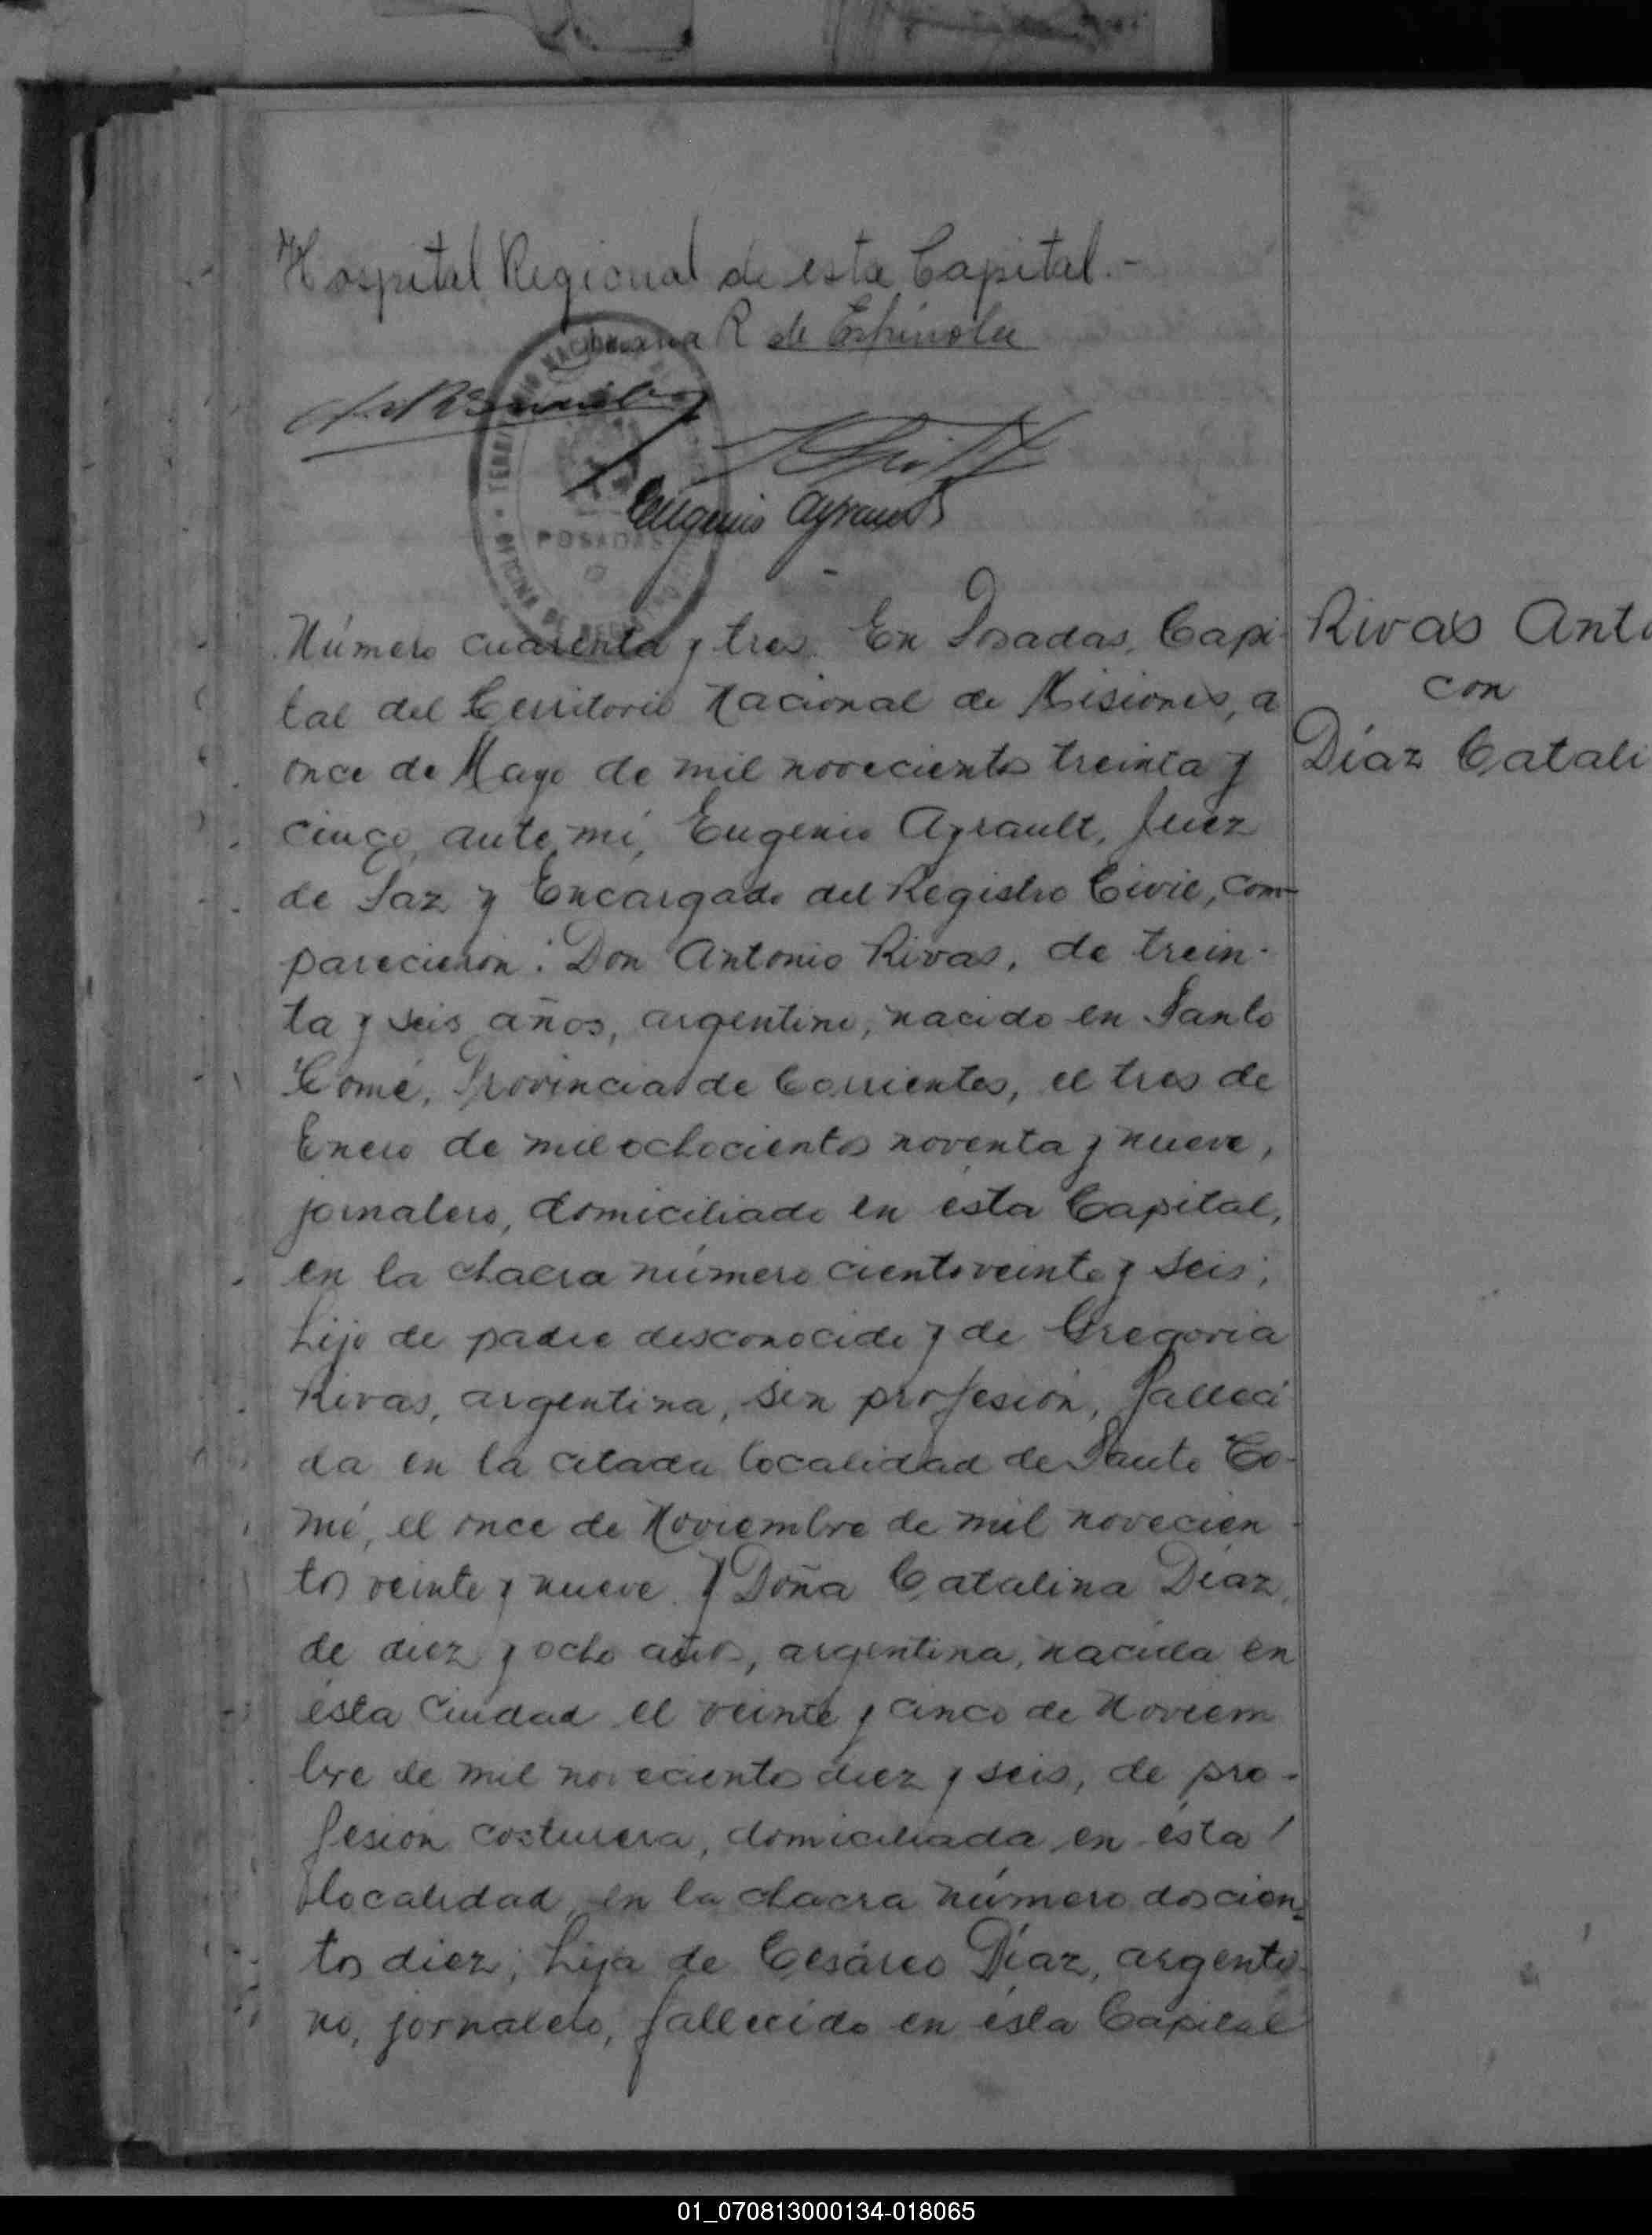 Hospital Regional de esta Capital.-
R de Espinola
Eugenio Ayrault
TERRITORIO NACIONAL
POSADAS
OFICINA DE
Número cuarenta y tres. En Posadas, Capi-
tal del Territorio Nacional de Misiones, a
once de Mayo de mil novecientos treinta y
cinco, ante mí, Eugenio Ayrault, Juez
de Paz y Encargado del Registro Civil, com-
parecieron: Don Antonio Rivas, de trein-
ta y seis años, argentino, nacido en Santo
Tomé, Provincia de Corrientes, el tres de
Enero de mil ochocientos noventa y nueve,
jornalero, domiciliado en ésta Capital,
en la chacra número ciento veinte y seis;
hijo de padre desconocido y de Gregoria
Rivas, argentina, sin profesión, falleci
da en la citada localidad de Santo To-
mé, el once de Noviembre de mil novecien-
tos veinte y nueve. Y Doña Catalina Díaz,
de diez y ocho años, argentina, nacida en
ésta Ciudad el veinte y cinco de Noviem
bre de mil novecientos diez y seis, de pro-
fesión costurera, domiciliada en ésta
localidad, en la chacra número doscien-
tos diez; hija de Cesáreo Díaz, argenti-
no, jornalero, fallecido en ésta Capital
Rivas Anto
con
Díaz Catali
01_070813000134-018065